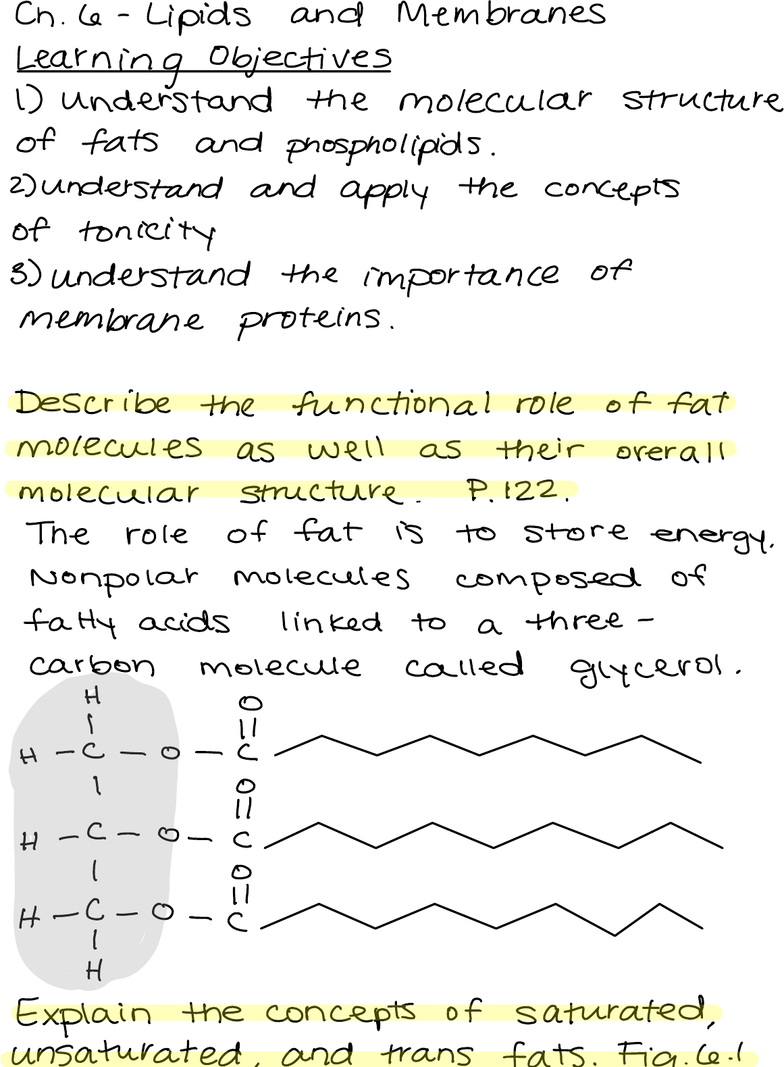 Ch. 6 - Lipids and Membranes
Learning Objectives
1) understand the molecular structure
of fats and phospholipids.
2) understand and apply the concepts
of tonicity
3) understand the importance of
membrane proteins.
Describe the functional role of fat
molecules as well as their overall
molecular structure. P.122.
The role of fat is to store energy.
Nonpolar molecules composed of
fatty acids linked to a three-
carbon molecule called glycerol.
H O
H - C - O - C
O
H - C - O - C
O
H - C - O - C
H
Explain the concepts of saturated,
unsaturated, and trans fats. Fig. 6.1